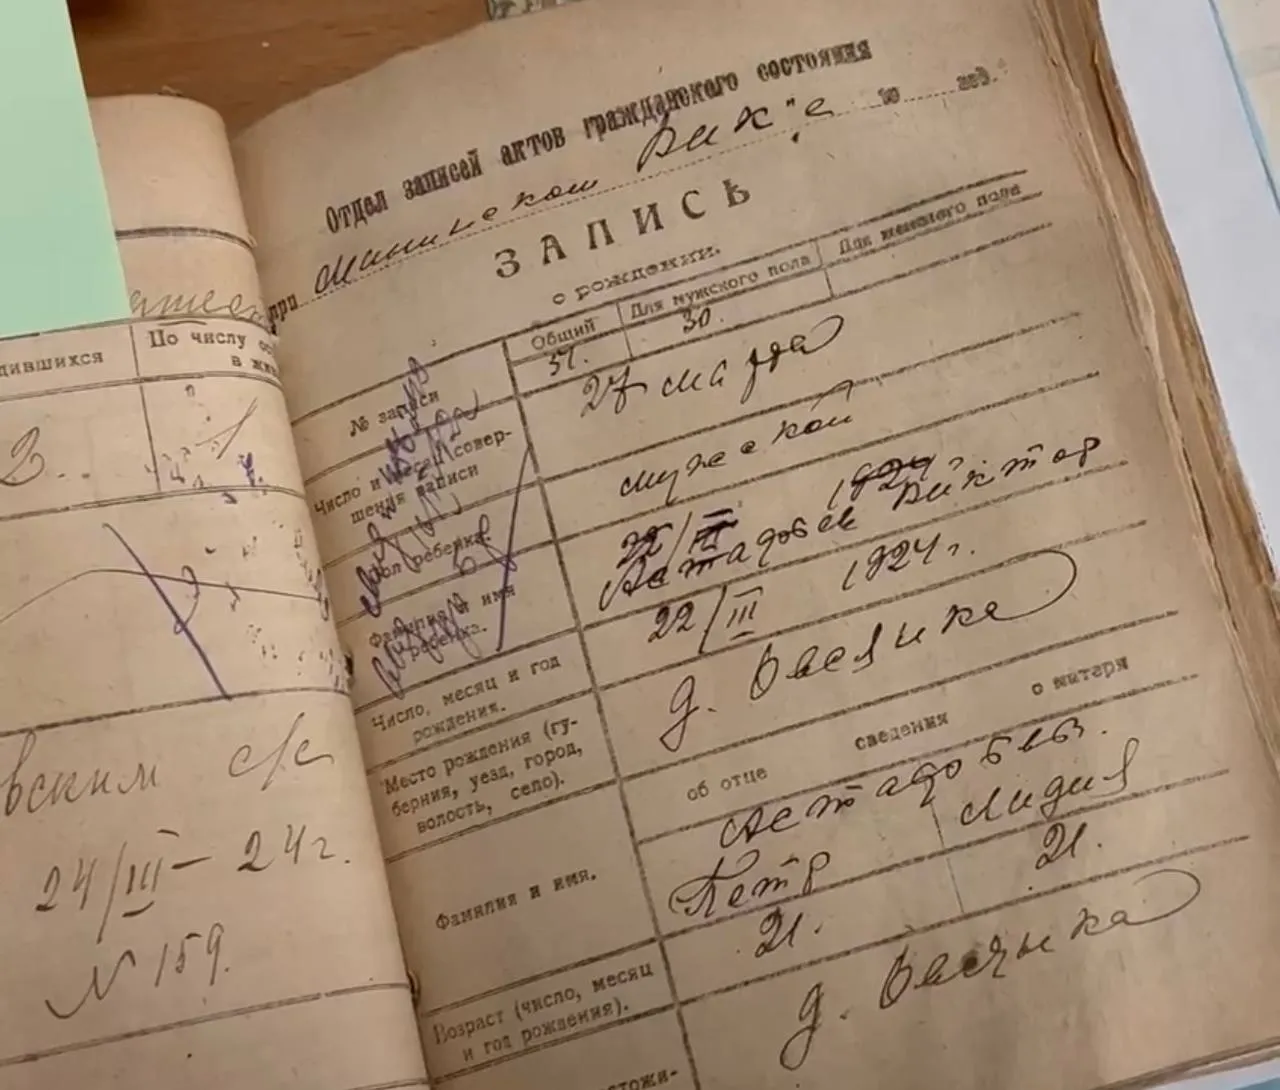 дившихся
По числу
2..
1
вским с/с
24/III – 24 г.
N 159.
Отдел записей актов гражданского состояния
при Мишинском Вик'е
ЗАПИСЬ
о рождении.
Общий
Для мужского пола
Для женского пола
№ записи
51.
30.
Число и совер-
шения записи
27 марта
ребенка.
мужской
22/III 1924 г.
Фамилия и имя
ребенка.
Астафьев Виктор
Число, месяц и год
рождения.
22/III 1924 г.
Место рождения (гу-
берния, уезд, город,
волость, село).
д. Овсянка
сведения
об отце
о матери
Фамилия и имя.
Астафьевы.
Петр
Лидия
Возраст (число, месяц
и год рождения).
21.
21.
д. Овсянка